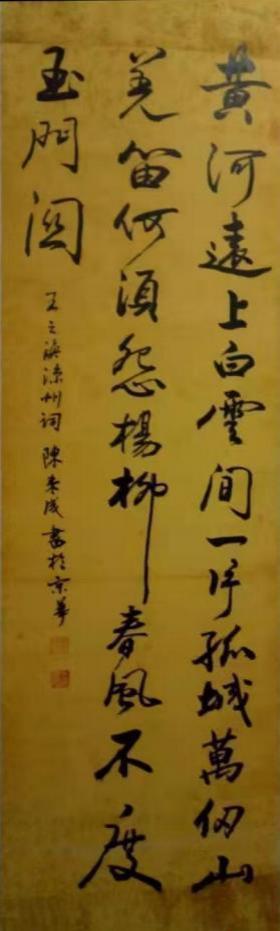 黄河遠上白雲间一片孤城萬仞山
羌笛何須怨楊柳春風不度
玉门関
王之渙涼州詞 陳 成書於京華